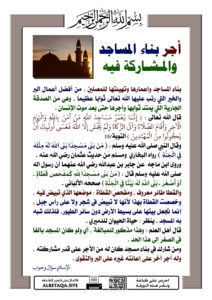 بسم الله الرحمن الرحيم
أجر بناء المساجد
والمشاركة فيه
بناء المساجد وإعمارها وتهيئتها للمصلين ، من أفضل أعمال البر
والخير التي رتب عليها الله تعالى ثواباً عظيماً . وهي من الصدقة
الجارية التي يمتد ثوابها وأجرها حتى بعد موت الإنسان .
قال الله تعالى : { إِنَّمَا يَعْمُرُ مَسَاجِدَ اللَّهِ مَنْ آمَنَ بِاللَّهِ وَالْيَوْمِ
الْآخِرِ وَأَقَامَ الصَّلَاةَ وَآتَى الزَّكَاةَ وَلَمْ يَخْشَ إِلَّا اللَّهَ فَعَسَى أُولَئِكَ أَنْ
يَكُونُوا مِنَ الْمُهْتَدِينَ } التوبة/18
وقال النبي صلى الله عليه وسلم : ( مَنْ بَنَى مَسْجِدًا بَنَى اللَّهُ لَهُ مِثْلَهُ
فِي الْجَنَّةِ ) رواه البخاري ومسلم من حديث عثمان رضي الله عنه .
وروى ابن ماجه عن جابر بن عبدالله رضي الله عنهما أن رسول الله
صلى الله عليه وسلم قال : ( مَنْ بَنَى مَسْجِدًا لِلَّهِ كَمَفْحَصِ قَطَاةٍ
أَوْ أَصْغَرَ ، بَنَى اللَّهُ لَهُ بَيْتًا فِي الْجَنَّةِ ) صححه الألباني .
والقطا طائر معروف ، ومفحص القطاة : موضعها الذي تبيض فيه .
وخصصت القطاة بهذا لأنها لا تبيض في شجر ولا على رأس جبل ،
إنما تجعل بيتها على بسيطة الأرض دون سائر الطيور، فلذلك شبه
به المسجد . ينظر : حياة الحيوان للدميري .
قال أهل العلم : وهذا مذكور للمبالغة ، أي ولو كان المسجد بالغاً
في الصغر الى هذا الحد .
ومن شارك في بناء مسجد كان له من الأجر على قدر مشاركته .
وله أجر آخر على إعانته غيره على البر والتقوى .
الإسلام سؤال وجواب
ALBETAQA.SITE